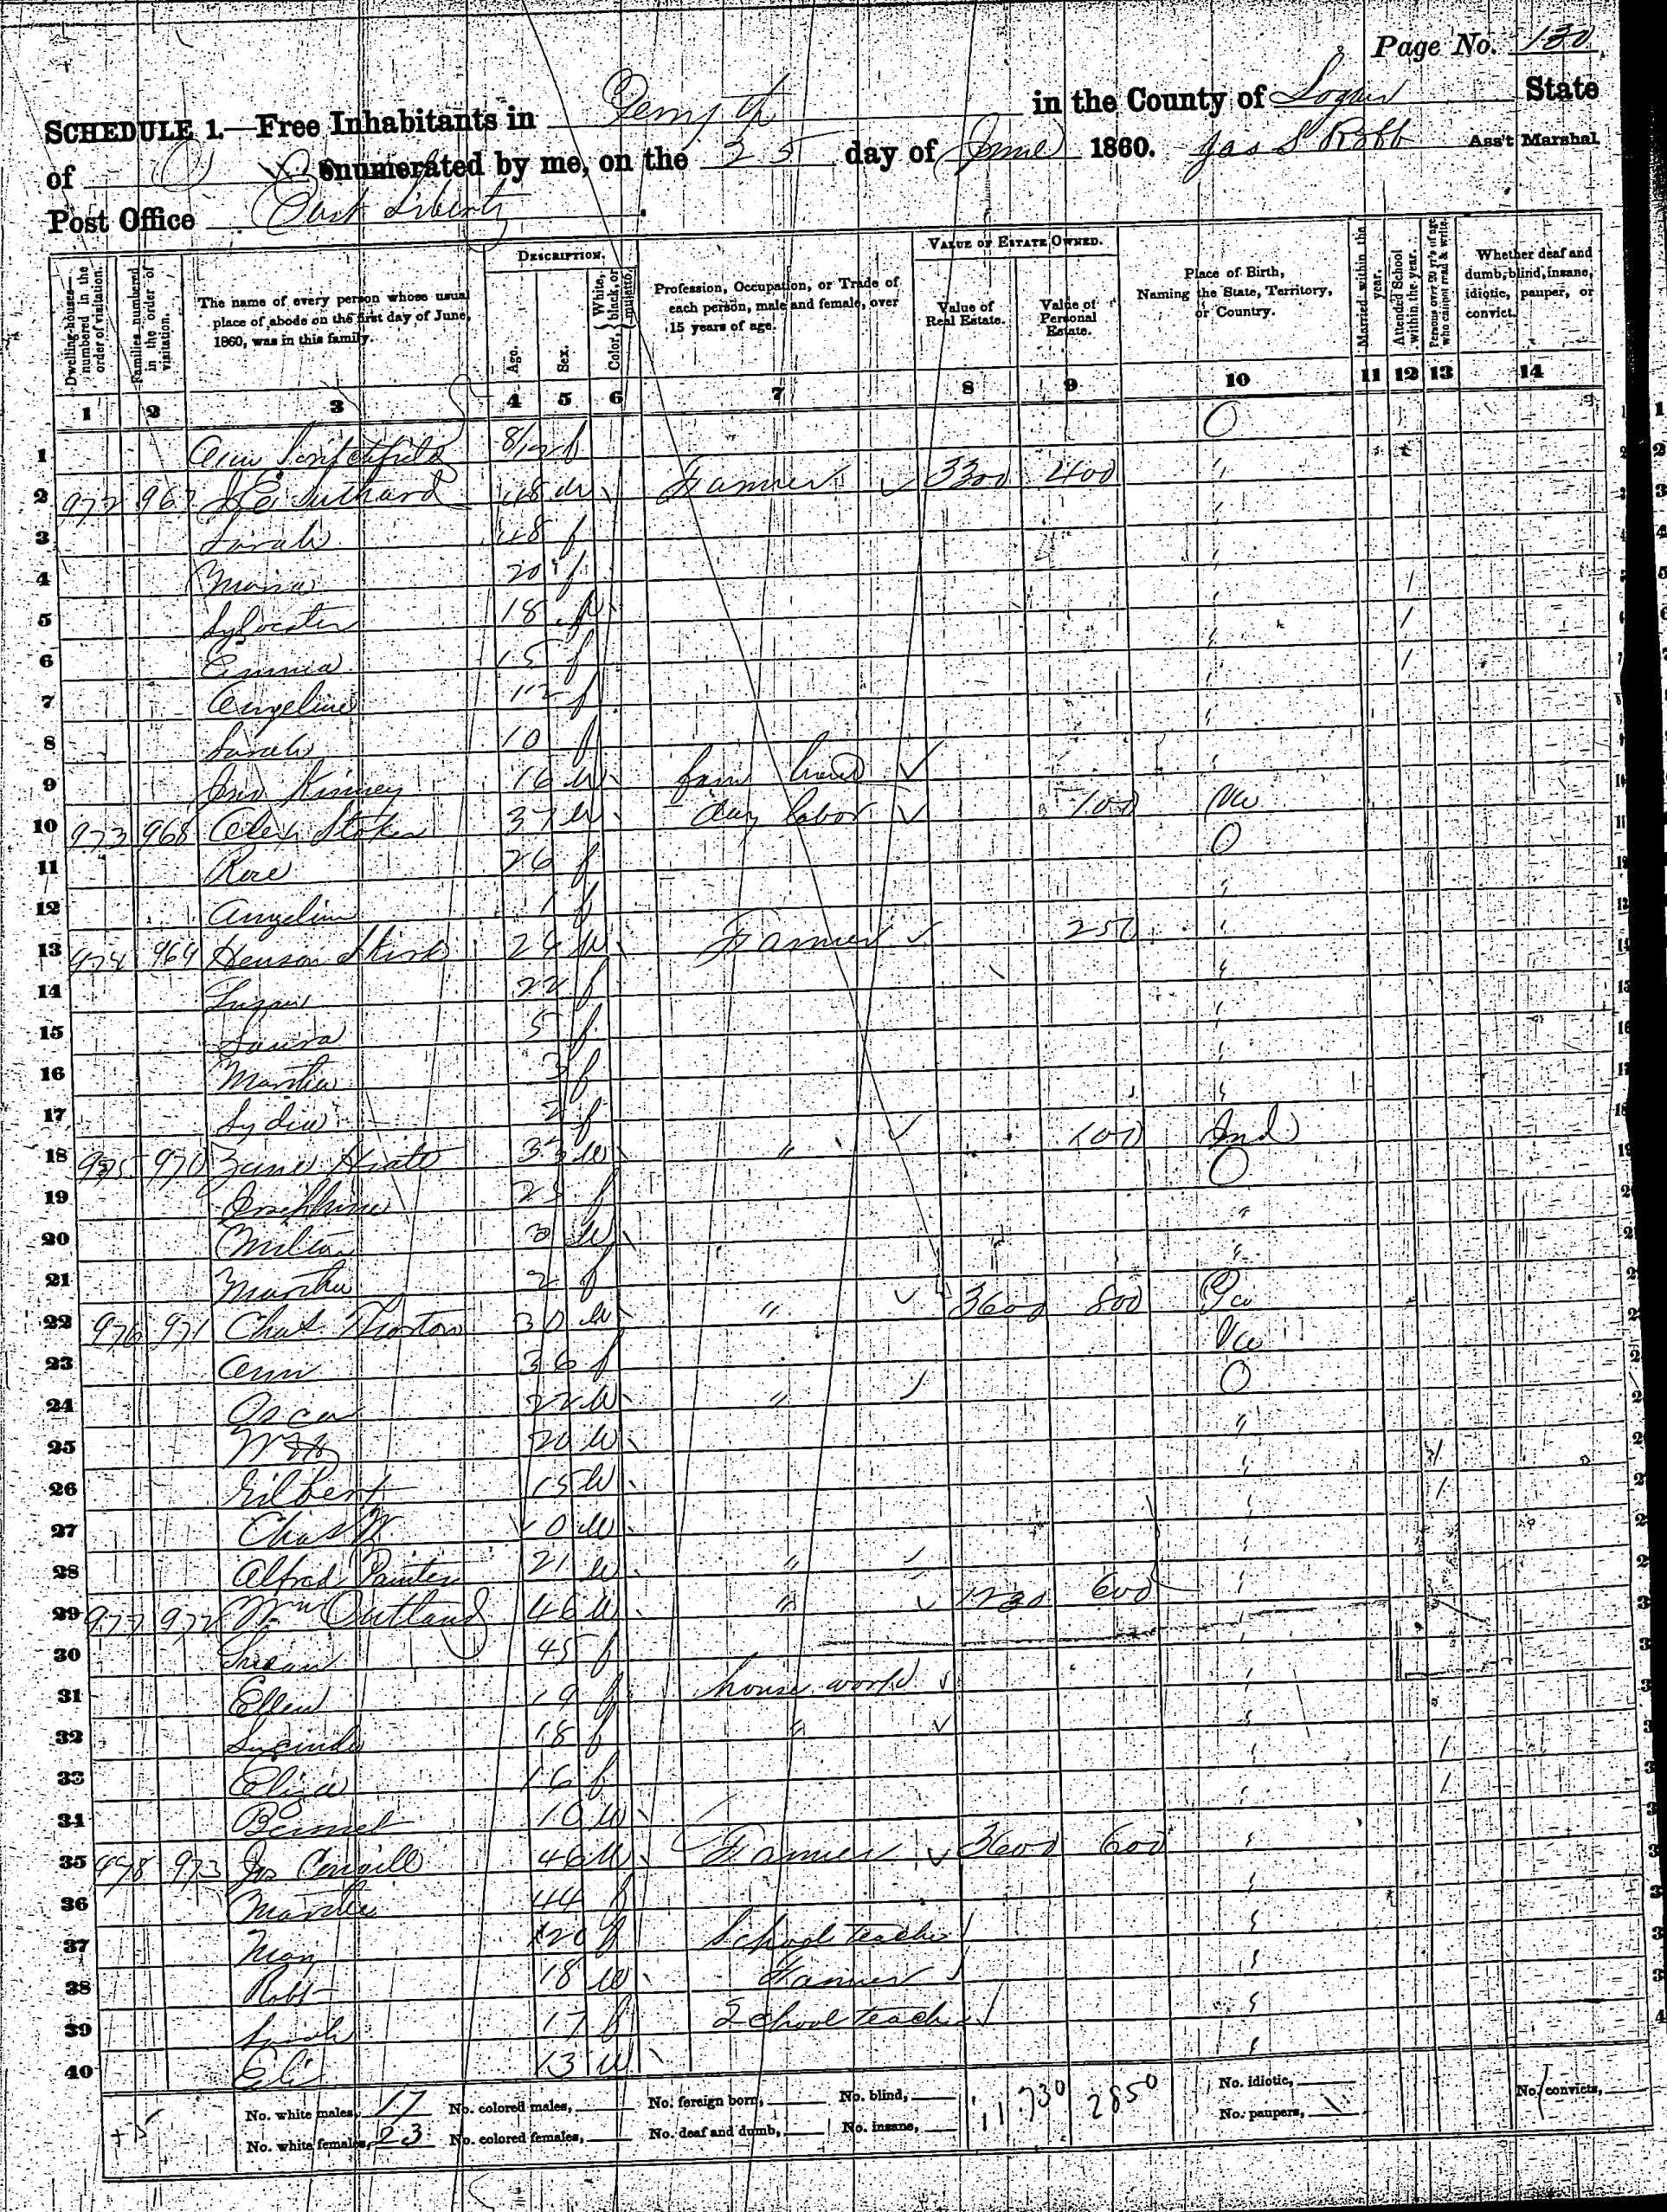 Page No. 130
SCHEDULE 1.—Free Inhabitants in Perry Tp in the County of Logan State
of O enumerated by me, on the 25 day of June 1860. Jas S Robb Ass't Marshal
Post Office East Liberty
Dwelling-houses—numbered in the order of visitation.
Families numbered in the order of visitation.
The name of every person whose usual place of abode on the first day of June, 1860, was in this family.
DESCRIPTION.
Age.
Sex.
Color, White, black, or mulatto.
Profession, Occupation, or Trade of each person, male and female, over 15 years of age.
VALUE OF ESTATE OWNED.
Value of Real Estate.
Value of Personal Estate.
Place of Birth, Naming the State, Territory, or Country.
Married within the year.
Attended School within the year.
Persons over 20 y'rs of age who cannot read & write.
Whether deaf and dumb, blind, insane, idiotic, pauper, or convict.
1 2 3 4 5 6 7 8 9 10 11 12 13 14
1 Ann 8/12 f O
2 972 967 48 m Farmer 3300 400 "
3 Sarah 48 f "
4 Maria 20 f "
5 Sylvester 18 m " /
6 Emma 15 f " /
7 Angeline 12 f " /
8 Sarah 10 f "
9 Jno Kinney 16 m farm hand "
10 973 968 Alex Stokes 37 m day labor 100 Va
11 Rose 26 f O
12 Angeline 1 f "
13 974 969 Henson 24 m Farmer 250 "
14 Susan 22 f "
15 Laura 5 f "
16 Martha 3 f "
17 Lydia 2 f "
18 975 970 Zane Hiatt 33 m " 100 Ind
19 Josephine 23 f O
20 Milton 3 m "
21 Martha 2 f "
22 976 971 Chas. 30 m " 3600 800 Pa
23 Ann 36 f Va
24 Oscar 22 m " O
25 Wm H 20 m "
26 Gilbert 15 m " /
27 Chas W 10 m " /
28 Alfred Painter 21 m " "
29 977 972 Wm Outland 46 m " 1230 600 "
30 Susan 45 f "
31 Ellen 19 f house work "
32 Lucinda 18 f " "
33 Eliza 16 f " /
34 10 m " /
35 978 973 Jos Cowgill 46 m Farmer 3600 600 "
36 Martha 44 f "
37 May 20 f School teacher "
38 Robt 18 m Farmer "
39 Sarah 17 f School teacher "
40 Eli 13 m "
No. white males, 17 No. colored males, No. foreign born, No. blind, 11.730 2850 No. idiotic, No. convicts,
No. white females, 23 No. colored females, No. deaf and dumb, No. insane, No. paupers,